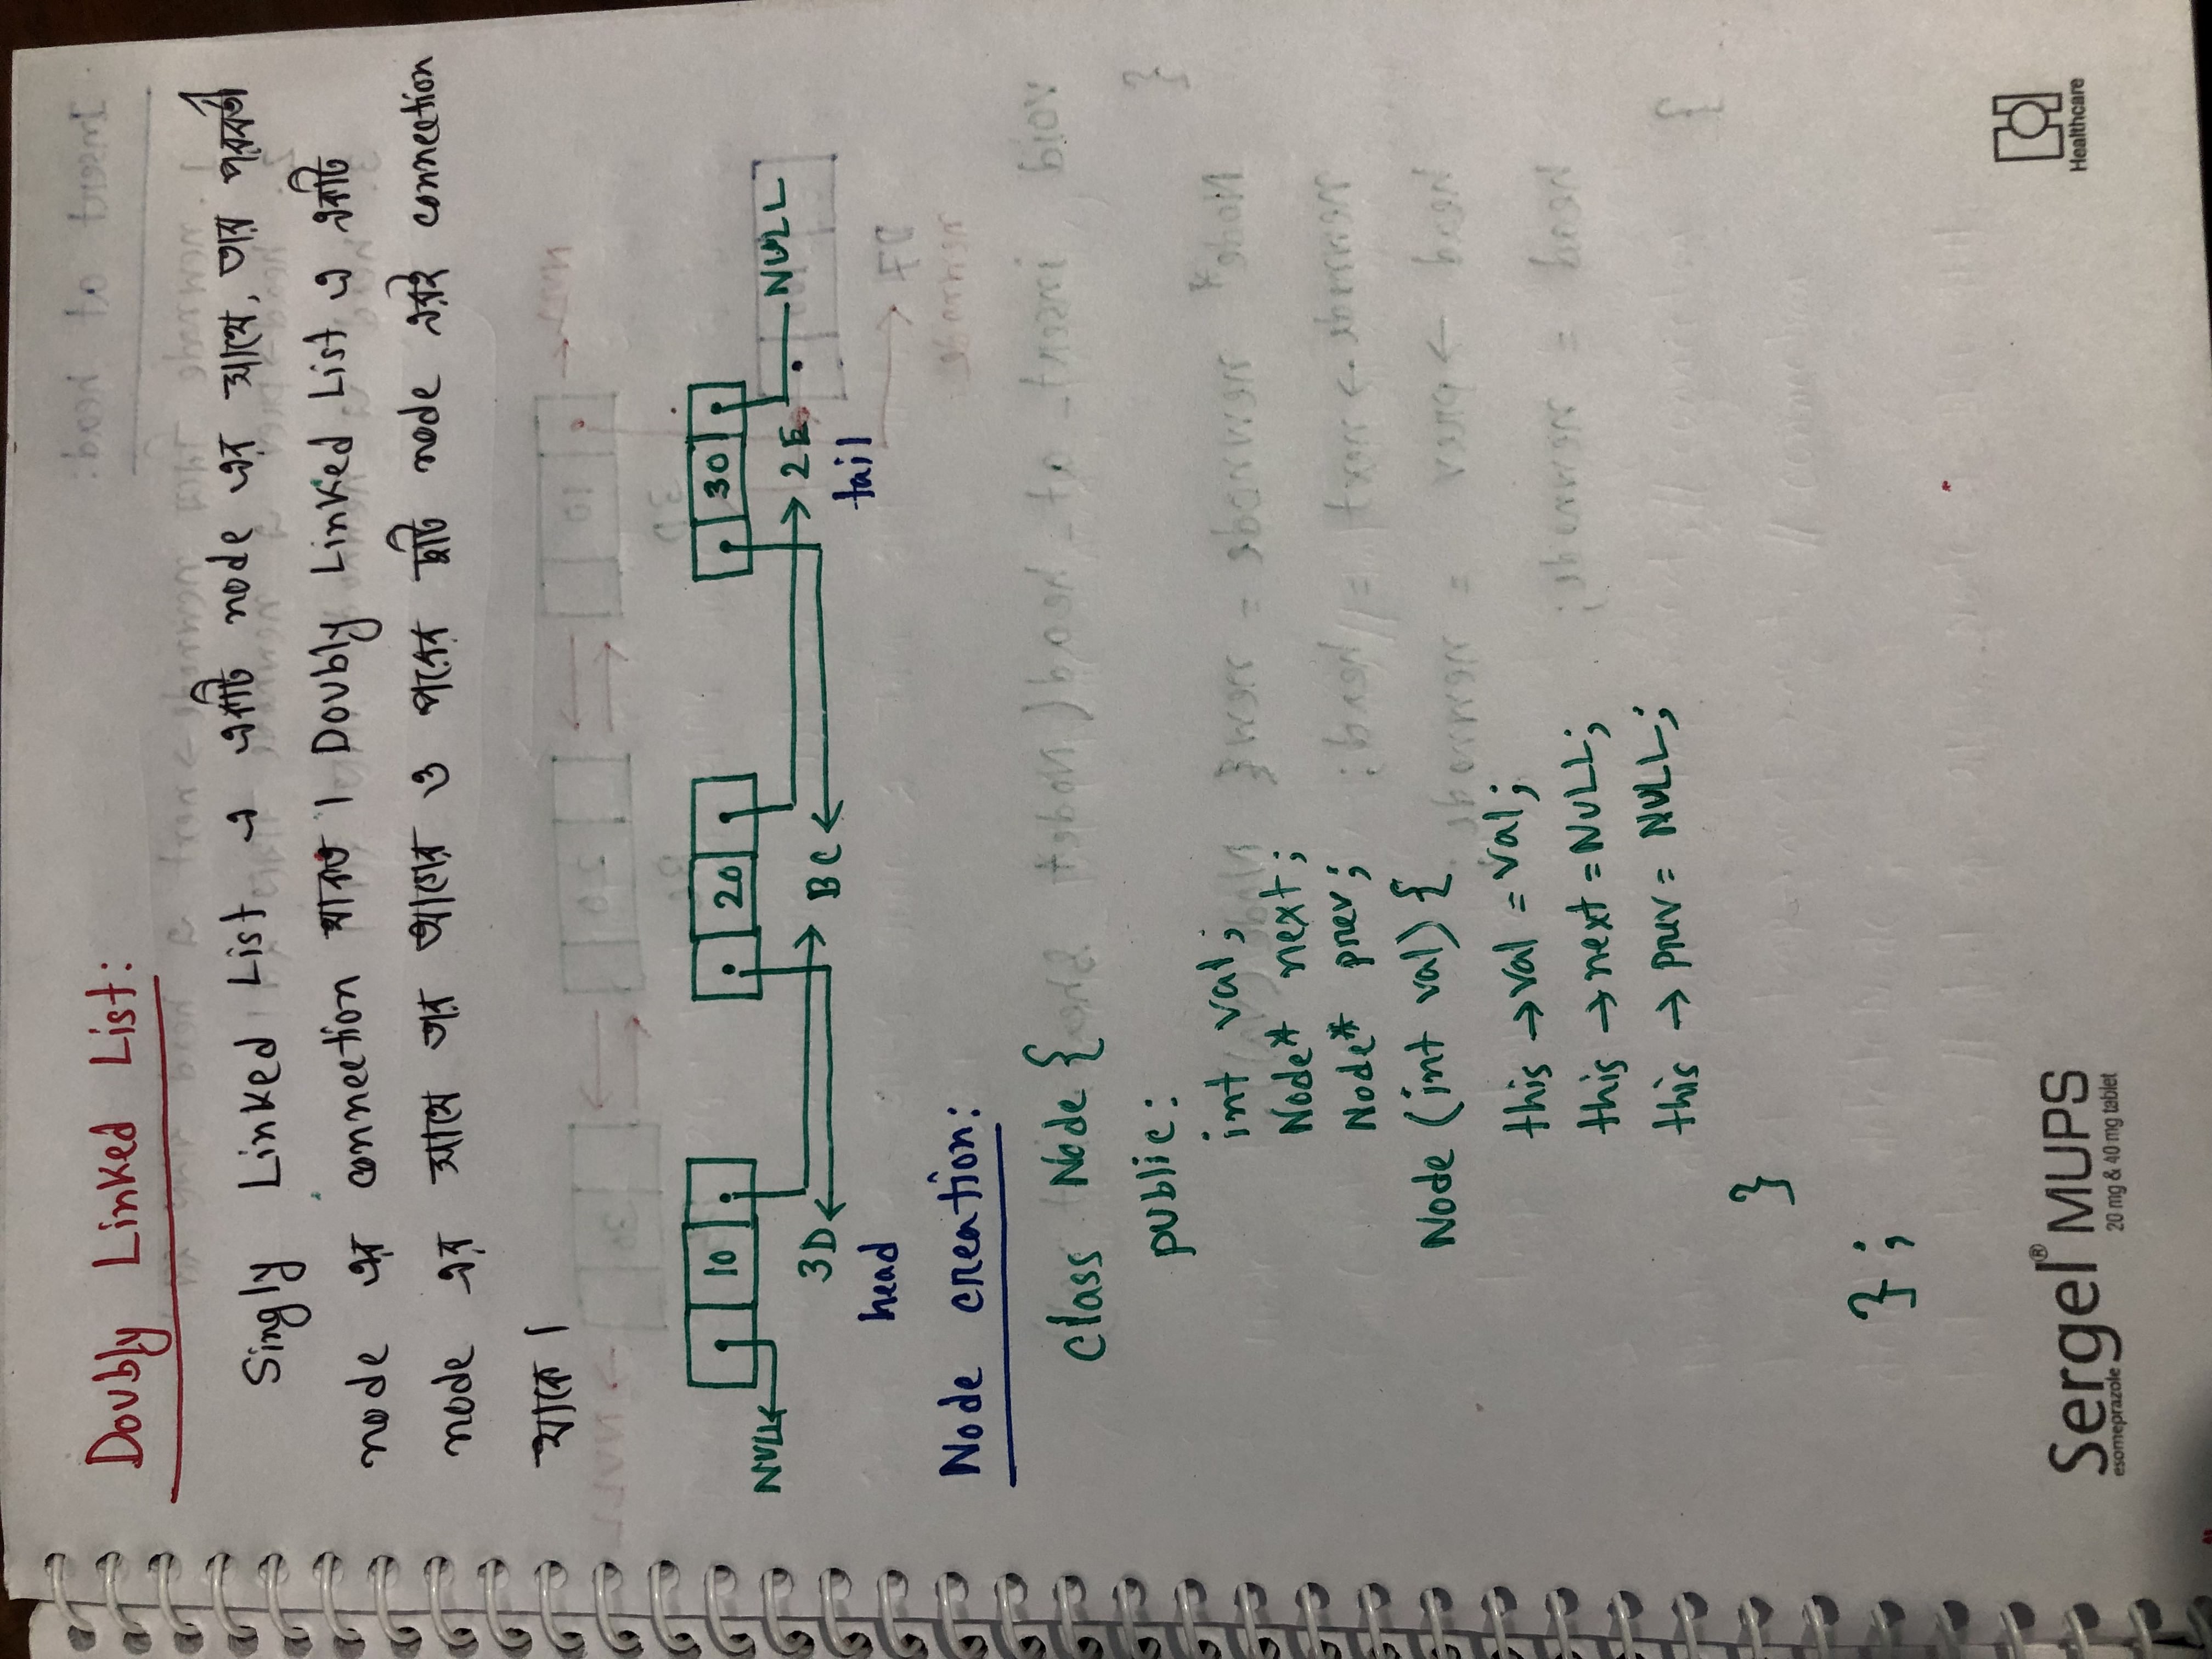 Doubly Linked List:
Singly Linked List এ একটি node এর সাথে, তার পরবর্তী
node এর connection থাকত। Doubly Linked List এ একটি
node এর সাথে তার আগের ও পরের দুটি node এরই connection
থাকে।
10 20 30
NULL NULL
3D BC 2E
head tail
Node creation:
class Node {
public:
int val;
Node* next;
Node* prev;
Node (int val) {
this →val = val;
this → next = NULL;
this → prev = NULL;
}
};
Sergel® MUPS
esomeprazole 20 mg & 40 mg tablet
Healthcare